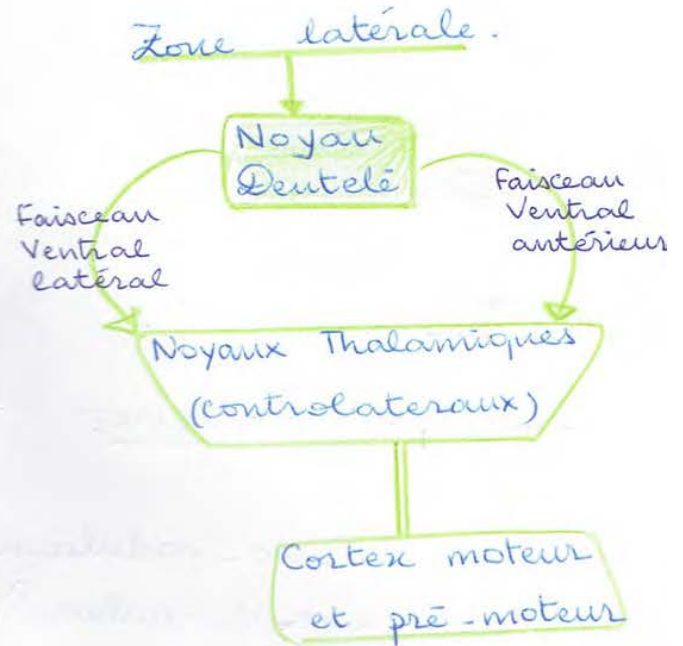 Zone latérale.
Noyau
Dentelé
Faisceau
Ventral
latéral
Faisceau
Ventral
antérieur
Noyaux Thalamiques
(controlateraux)
Cortex moteur
et pré-moteur